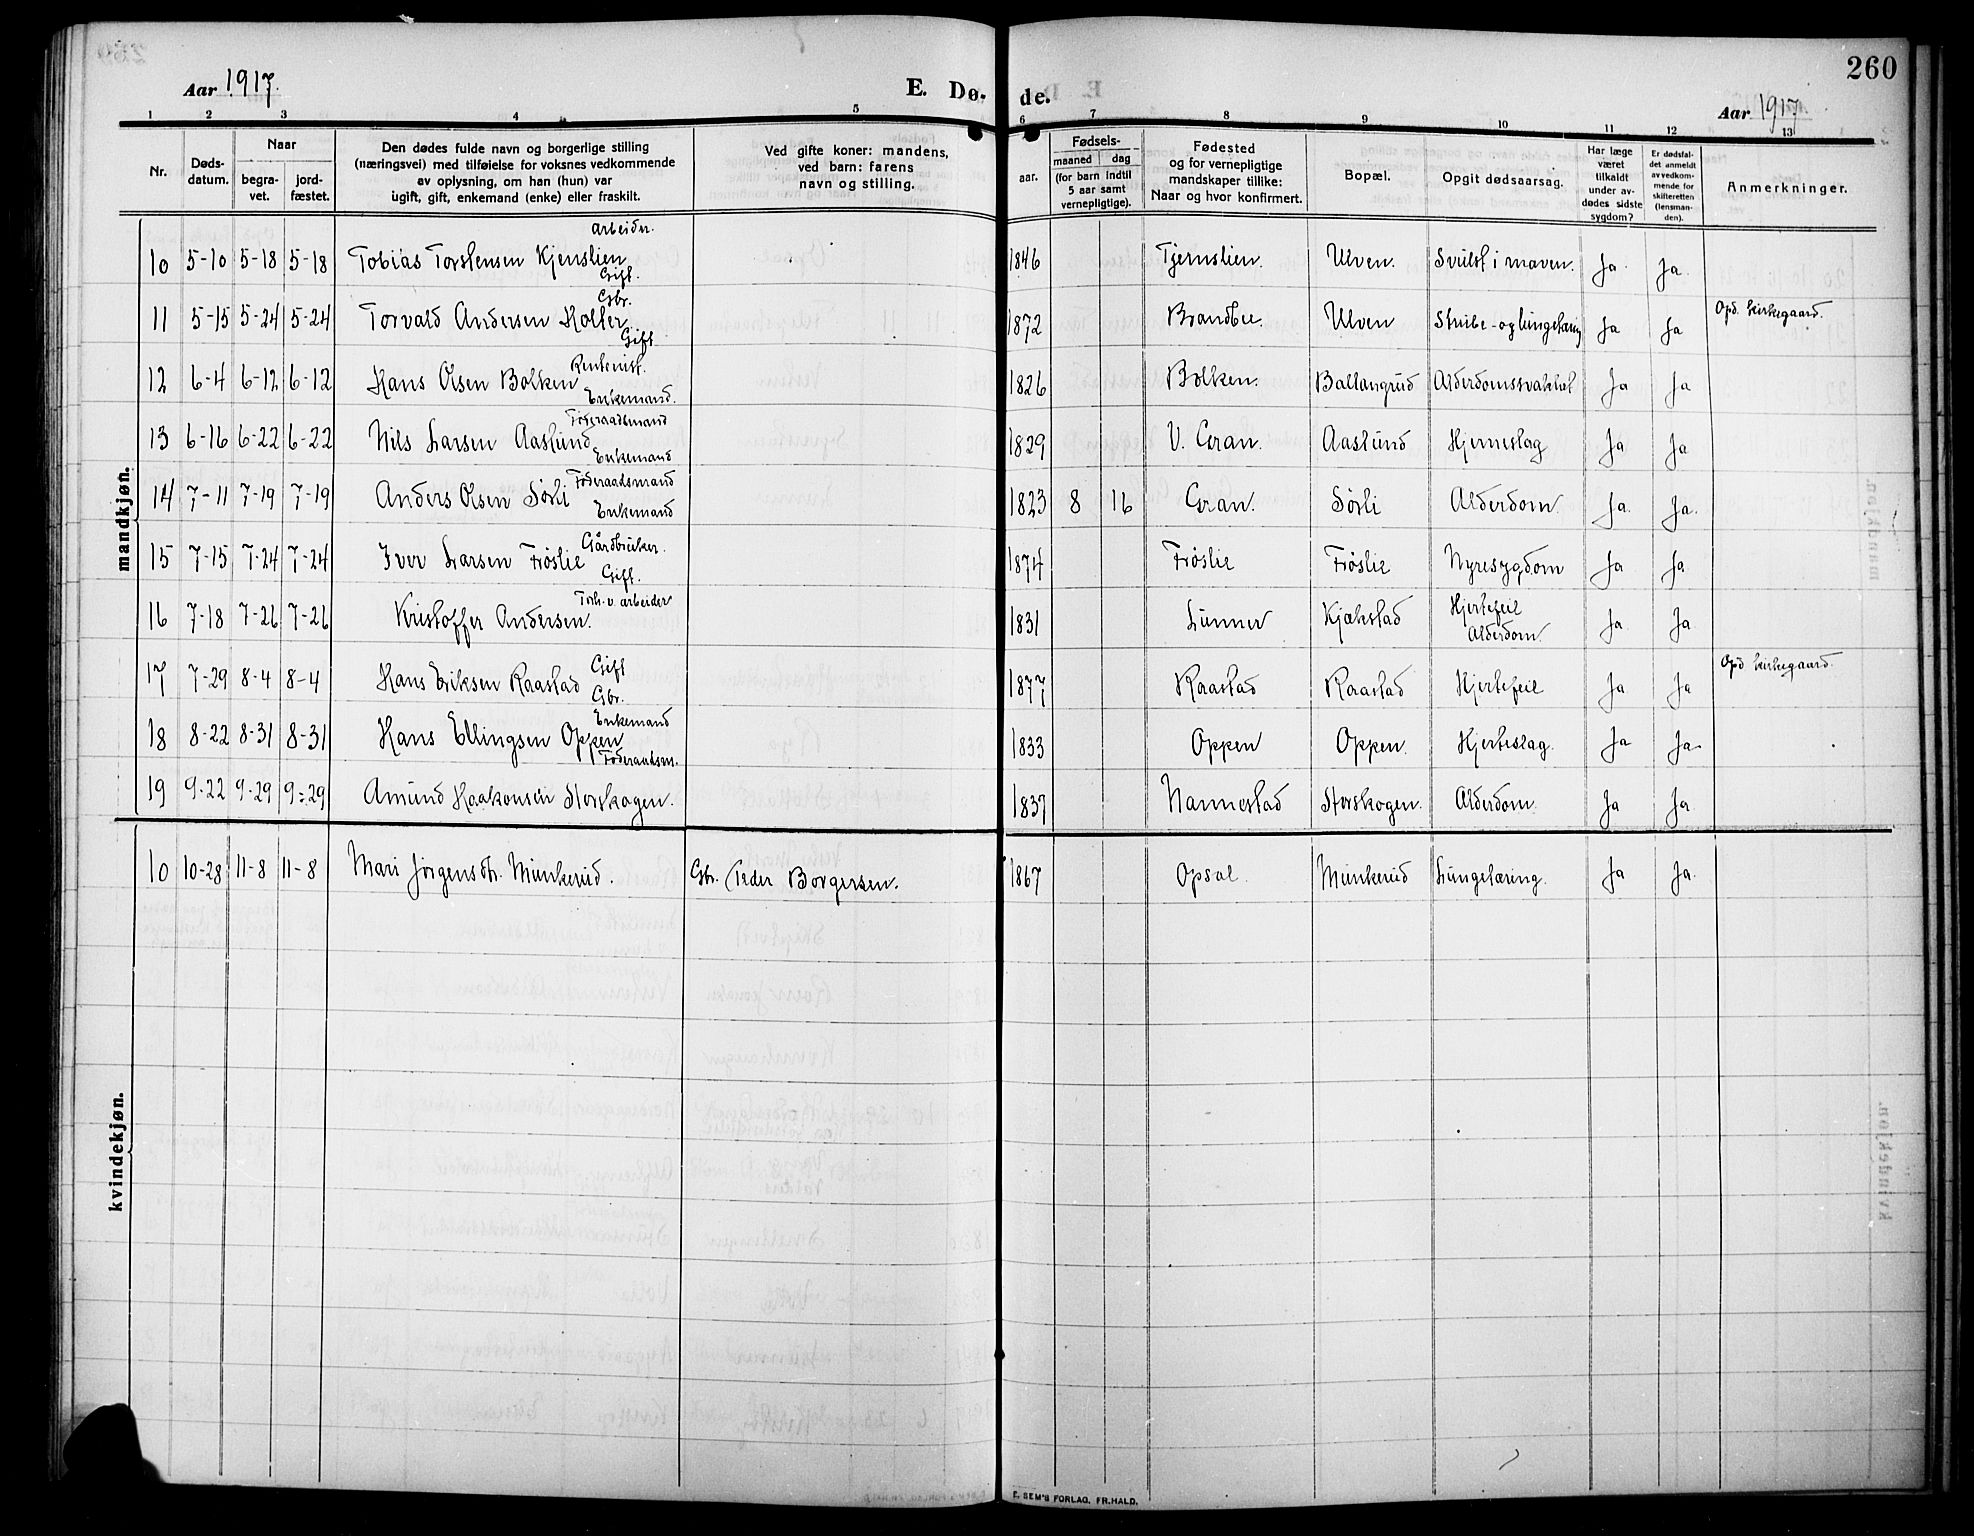 Aar 1917.
E. Dø-
de.
Aar 1917.
260
1 2 3 4 5 6 7 8 9 10 11 12 13
Nr.
Døds-
datum.
Naar
begra-
vet.
jord-
fæstet.
Den dødes fulde navn og borgerlige stilling
(næringsvei) med tilføielse for voksnes vedkommende
av oplysning, om han (hun) var
ugift, gift, enkemand (enke) eller fraskilt.
Ved gifte koner: mandens,
ved barn: farens
navn og stilling.
aar.
Fødsels-
maaned dag
(for barn indtil
5 aar samt
vernepligtige).
Fødested
og for vernepligtige
mandskaper tillike:
Naar og hvor konfirmert.
Bopæl.
Opgit dødsaarsag.
Har læge
været
tilkaldt
under av-
dødes sidste
sygdom?
Er dødsfal-
det anmeldt
av vedkom-
mende for
skifteretten
(lensman-
den).
Anmerkninger.
mandkjøn.
arbeider.
10 5-10 5-18 5-18 Tobias Torstensen Kjenslien 1846 Tjernslien. Ulven. Svulst i maven. Ja. Ja.
Gift.
Gbr.
11 5-15 5-24 5-24 Torvald Andersen Holter 1872 Brandbu. Ulven Strube- og lungetæring Ja Ja Opd. kirkegaard.
Gift
Rentenist.
12 6-4 6-12 6-12 Hans Olsen Bolken 1826 Bolken. Ballangrud Alderdomssvakhet Ja Ja
Enkemand.
Føderaadsmand
13 6-16 6-22 6-22 Nils Larsen Aaslund 1829 V. Gran. Aaslund Hjerneslag Ja Ja
Enkemand
Føderaadsmand
14 7-11 7-19 7-19 Anders Olsen Sørli 1823 8 16 Gran. Sørli Alderdom. Ja. Ja.
Enkemand
Gårdbruker.
15 7-15 7-24 7-24 Iver Larsen Frøslie 1874 Frøslie Frøslie Nyresygdom Ja Ja
Gift.
Forh. v. arbeider
16 7-18 7-26 7-26 Kristoffer Andersen. 1831 Lunner Kjækstad Hjertefeil Ja Ja
Alderdom.
Gift
17 7-29 8-4 8-4 Hans Eriksen Raastad 1877 Raastad Raastad Hjertefeil Ja Ja Opd kirkegaard.
Gbr.
Enkemand
18 8-22 8-31 8-31 Hans Ellingsen Oppen 1833 Oppen Oppen. Hjerteslag. Ja Ja
Føderaadsm.
19 9-22 9-29 9-29 Amund Haakonsen Storskogen. 1837 Nannestad Storskogen. Alderdom. Ja Ja
kvindekjøn.
10 10-28 11-8 11-8 Mari Jørgensdtr. Munkerud. Gbr. Peder Borgersen. 1867 Opsal. Munkerud Lungetæring. Ja Ja.
E. SEM'S FORLAG, FR.HALD.